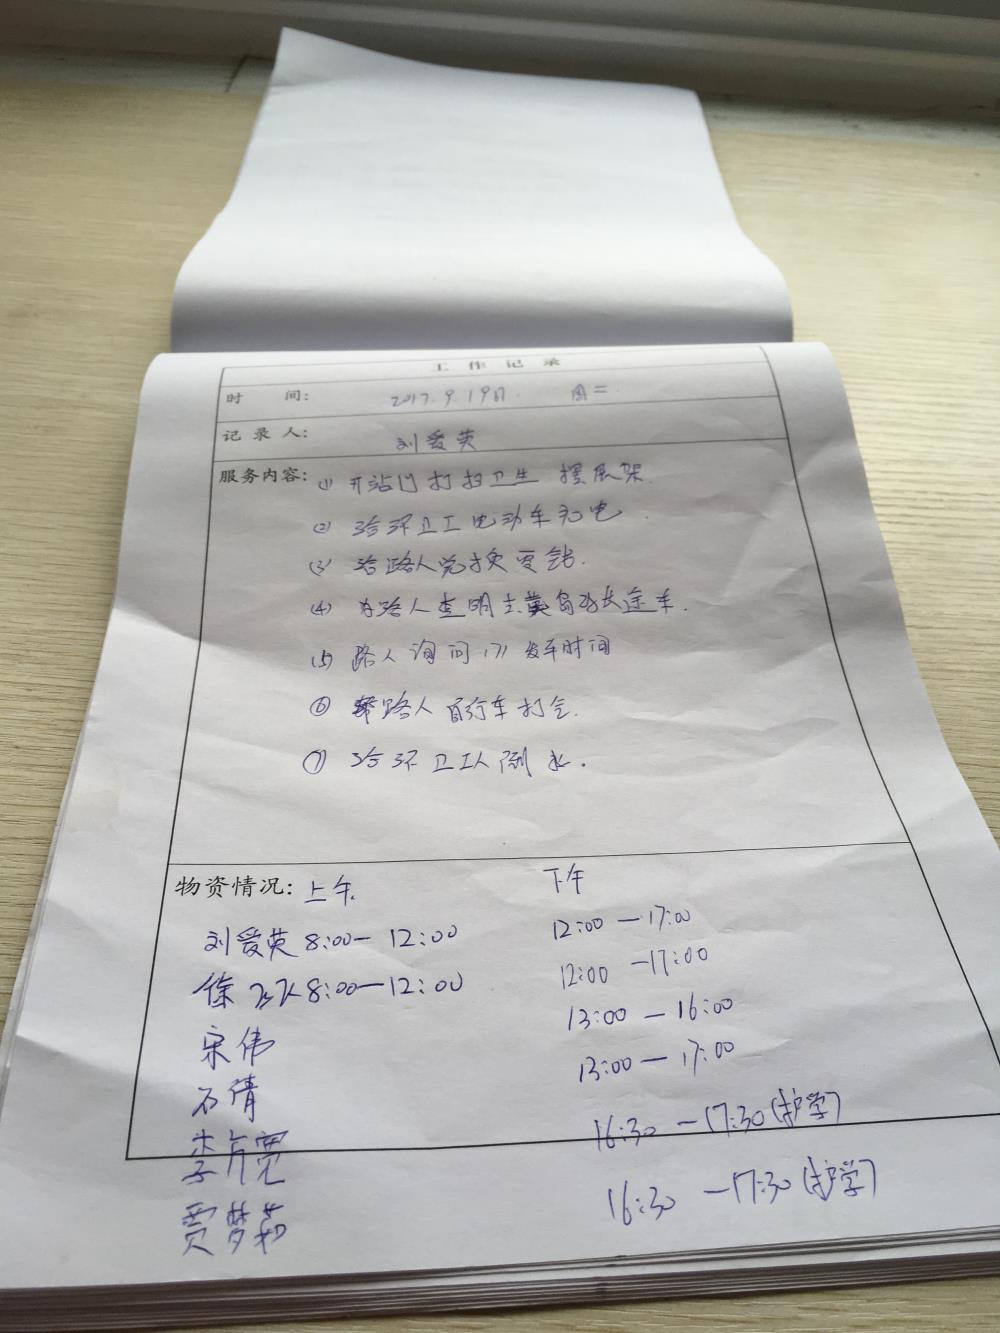 工作记录
时 间: 2017.9.19日. 周二.
记录人: 刘爱英
服务内容: (1) 开站门打扫卫生 摆展架.
(2) 给环卫工电动车充电.
(3) 给路人兑换零钱.
(4) 为路人查明去黄岛的长途车.
(5) 路人询问171发车时间
⑥ 帮路人自行车打气.
⑦ 给环卫工人倒水.
物资情况: 上午. 下午
刘爱英 8:00—12:00 12:00—17:00
徐 8:00—12:00 12:00—17:00
宋伟 13:00—16:00
石倩 13:00—17:00
李宽 16:30—17:30(护学)
贾梦茹 16:30—17:30(护学)